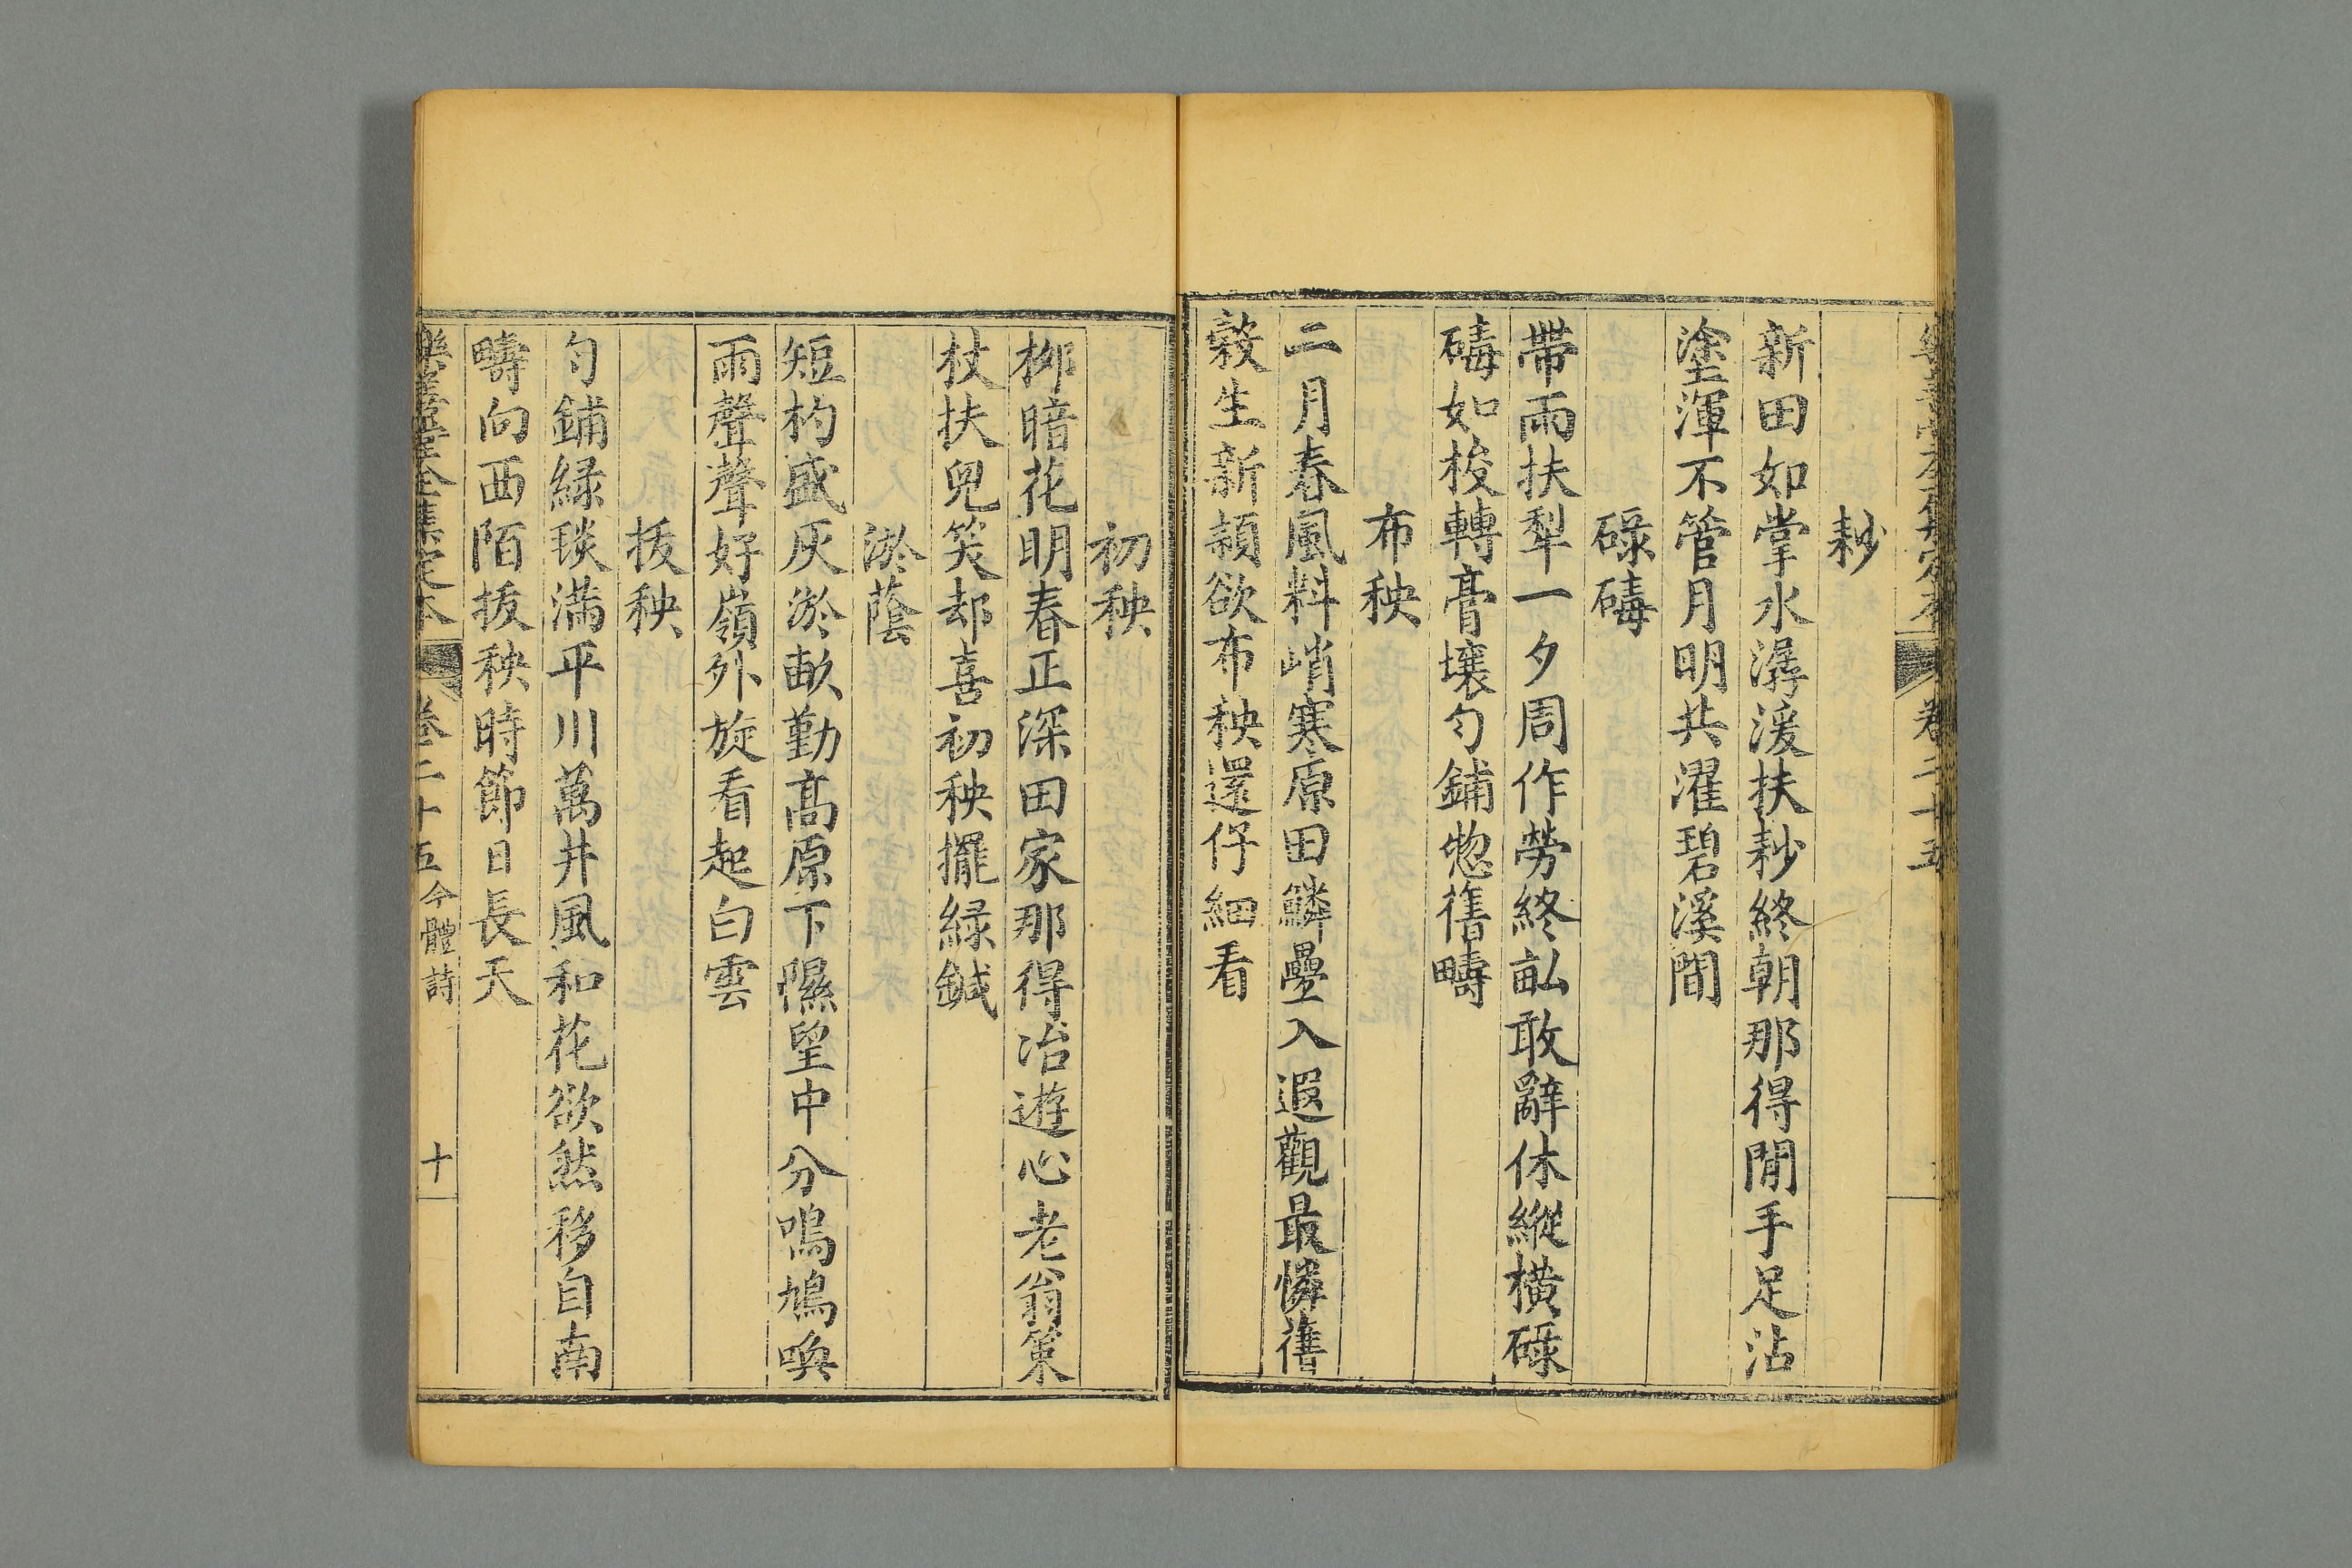 卷二十五
耖
新田如掌水潺湲扶耖終朝那得閒手足沾
塗渾不管月明共濯碧溪間
碌碡
帶雨扶犁一夕周作勞終畝敢辭休縱橫碌
碡如梭轉膏壤勻鋪惣舊疇
布秧
二月春風料峭寒原田鱗疊入遐觀最憐舊
穀生新穎欲布秧還仔細看
初秧
柳暗花明春正深田家那得冶遊心老翁策
杖扶兒笑却喜初秧擺緑鍼
淤蔭
短杓盛灰淤畝勤高原下隰望中分鳴鳩喚
雨聲聲好嶺外旋看起白雲
拔秧
勻鋪緑琰滿平川萬井風和花欲然移自南
疇向西陌拔秧時節日長天
樂善堂全集定本 卷二十五 今體詩 十